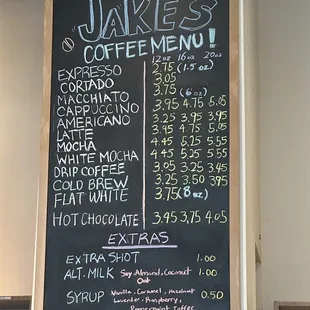 JAKES
COFFEE MENU!
12oz 16oz 20oz
EXPRESSO 2.75 (1.5 oz)
CORTADO 3.05
MACCHIATO 3.75 (6 oz)
CAPPUCCINO 3.95 4.75 5.05
AMERICANO 3.25 3.95 3.95
LATTE 3.95 4.75 5.05
MOCHA 4.45 5.25 5.55
WHITE MOCHA 4.45 5.25 5.55
DRIP COFFEE 3.05 3.25 3.45
COLD BREW 3.25 3.50 3.95
FLAT WHITE 3.75 (8 oz)
HOT CHOCOLATE 3.45 3.75 4.05
EXTRAS
EXTRA SHOT 1.00
ALT. MILK Soy, Almond, Coconut 1.00
Oat
SYRUP Vanilla, Caramel, Hazelnut 0.50
Lavender, Raspberry,
Peppermint Toffee